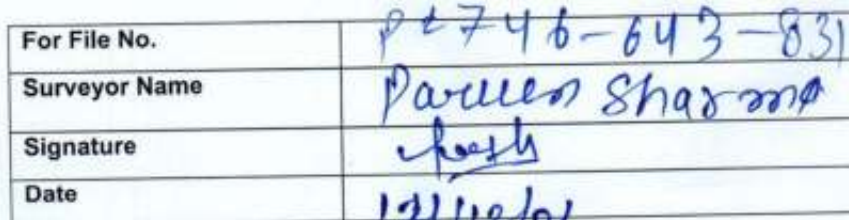 For File No. PL746-643-831
Surveyor Name Parveen Sharma
Signature
Date